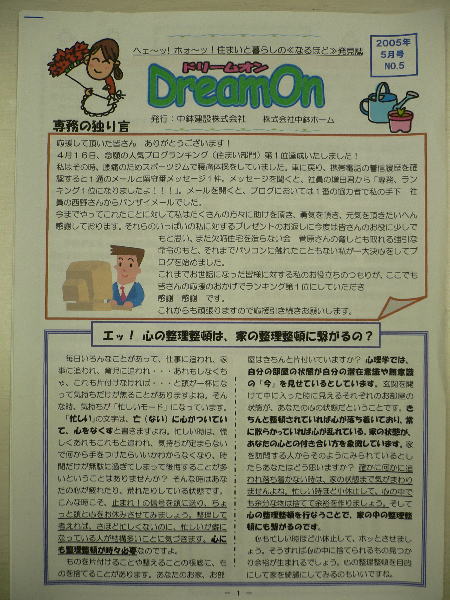 ヘェ〜ッ! ホォ〜ッ!住まいと暮らしの≪なるほど≫発見誌
2005年
5月号
NO.5
ドリームオン
DreamOn
発行:中鉢建設株式会社 株式会社中鉢ホーム
専務の独り言
応援して頂いた皆さん ありがとうございます!
4月16日、念願の人気ブログランキング(住まい部門)第1位達成いたしました!
私はその時、腰痛のためスポーツジムで腰痛体操をしていました。車に戻り、携帯電話の着信履歴を確
認すると1通のメールと留守番メッセージ1件。メッセージを開くと、社員の
ング1位になりましたよ!!!」。メールを開くと、ブログにおいては1番の協力者で私の手下 社
員の西野さんからバンザイメールでした。
今までやってこれたことに対して私はたくさんの方々に助けを頂き、勇気を頂き、元気を頂きたいへん
感謝しております。それらのいっぱいの私に対するプレゼントのお返しに今度は皆さんのお役に少しで
もと思い、また欠陥住宅を造らない会
命令のもと、それまでパソコンに触れたこともない私が一大決心をしてブ
ログを始めました。
これまでお世話になった皆様に対する私のお役立ちのつもりが、ここでも
皆さんの応援のおかげでランキング第1位にしていただき
感謝 感謝 です。
これからも頑張りますので応援引き続きお願いします。
エッ! 心の整理整頓は、家の整理整頓に繋がるの?
毎日いろんなことがあって、仕事に追われ、家
事に追われ、育児に追われ・・・あれもしなくち
ゃ、これも片付けなければ・・・と訳が一杯にな
って気持ちだけが焦ることがありますよね。そん
な時、気持ちが「忙しいモード」になっています。
「忙しい」の文字は、亡(ない)に心がついてい
て、心をなくすと書きますよね。忙しい時は、忙
しくあれもこれもと追われ、気持ちが定まらない
で何から手をつけたらいいかわからなくなり、時
間だけが無駄に過ぎてしまって後悔することが多
いということはありませんか? そんな時はあな
たの心が疲れたり、荒れたりしている状態です。
こんな時こそ、止まれ!の信号を頭に送り、ちょ
っと頭と心をお休みさせてみましょう。整理して
考えれば、さほど忙しくないのに、忙しいが癖に
なっている人が結構多いことに気づきます。心に
も整理整頓が時々必要なのですよ。
ものを片付けることや整えることの根底に、も
のを捨てることがあります。あなたのお家、お部
屋はきちんと片付いていますか? 心理学では、
自分の部屋の状態が自分の潜在意識や無意識
の「今」を見せているとしています。玄関を開
けて中に入った時に見えるそれぞれのお部屋の
状態が、あなたの心の状態だということです。き
ちんと整頓されていれば心が落ち着いており、常
に散らかっていれば心が乱れている、家の状態が、
あなたの心との付き合い方を象徴しています。家
を訪問する人からそのようにみられているとし
たらあなたはどう思いますか? 確かに何かに追
われ落ち着かない時は、家の状態まで気がまわり
ませんよね。忙しい時ほど小休止して、心の中で
も余分な物は捨てて余裕を作りましょう。そして
心の整理整頓を行なうことで、家の中の整理整
頓にも繋がるのです。
心も忙しい時ほど小休止して、ホッとさせまし
ょう。そうすれば心の中に捨てられるもの見つか
り余裕が生まれるでしょう。心の整理整頓を目的
にして家を綺麗にしてみるのもいいですね。
- 1 -